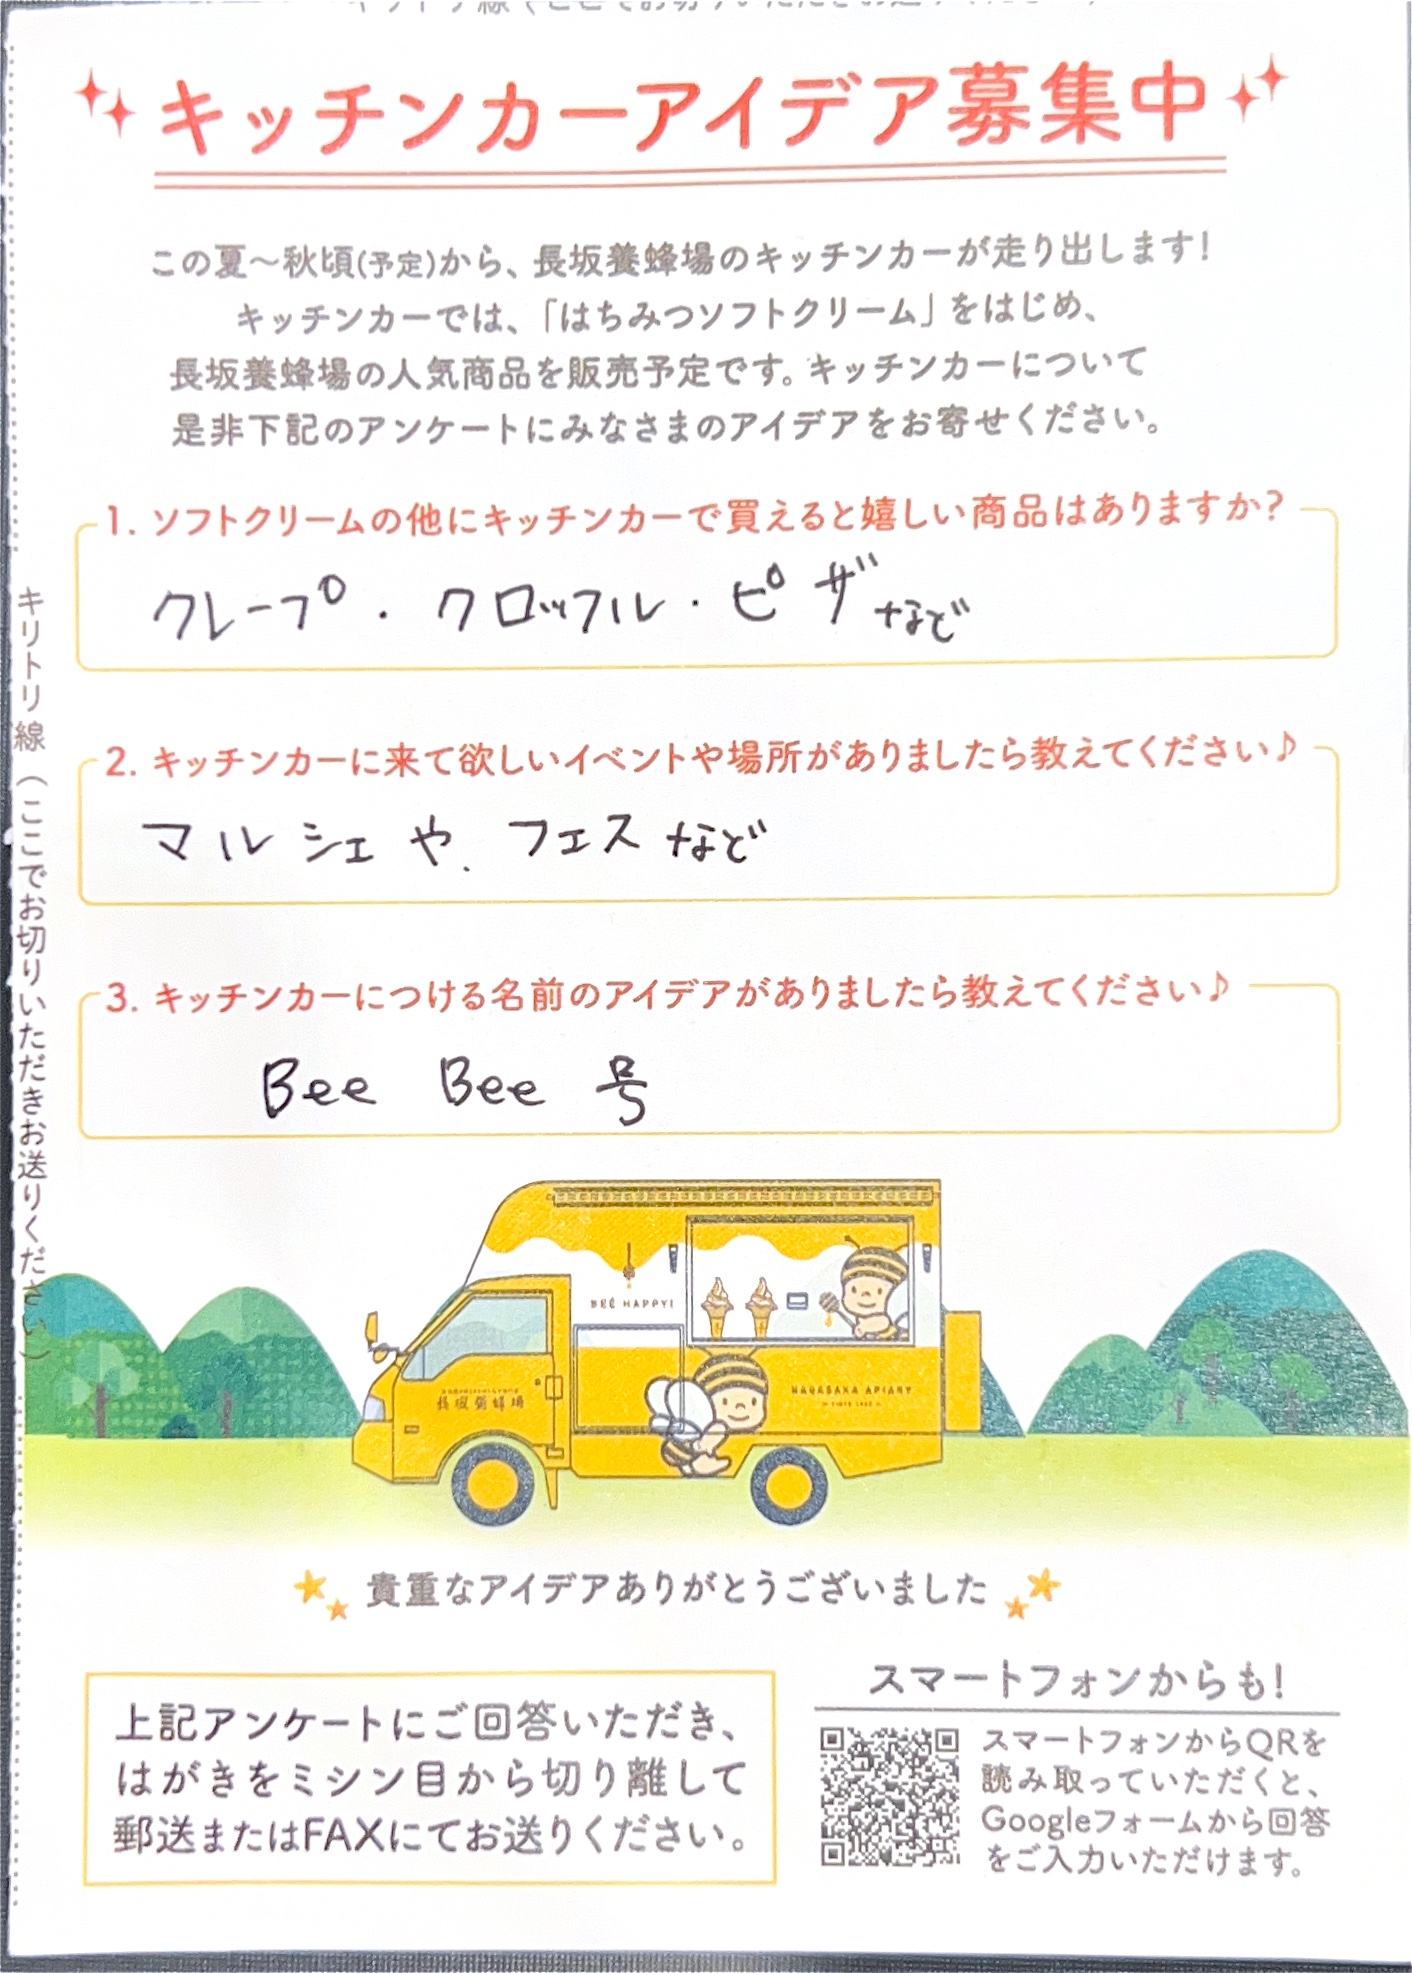 キッチンカーアイデア募集中
この夏～秋頃(予定)から、長坂養蜂場のキッチンカーが走り出します!
キッチンカーでは、「はちみつソフトクリーム」をはじめ、
長坂養蜂場の人気商品を販売予定です。キッチンカーについて
是非下記のアンケートにみなさまのアイデアをお寄せください。
1. ソフトクリームの他にキッチンカーで買えると嬉しい商品はありますか?
クレープ・クロッフル・ピザなど
2. キッチンカーに来て欲しいイベントや場所がありましたら教えてください♪
マルシェや、フェスなど
3. キッチンカーにつける名前のアイデアがありましたら教えてください♪
Bee Bee 号
キリトリ線(ここでお切りいただきお送りください)
BEE HAPPY!
長坂養蜂場
NAGASAKA APIARY
貴重なアイデアありがとうございました
上記アンケートにご回答いただき、
はがきをミシン目から切り離して
郵送またはFAXにてお送りください。
スマートフォンからも!
スマートフォンからQRを
読み取っていただくと、
Googleフォームから回答
をご入力いただけます。